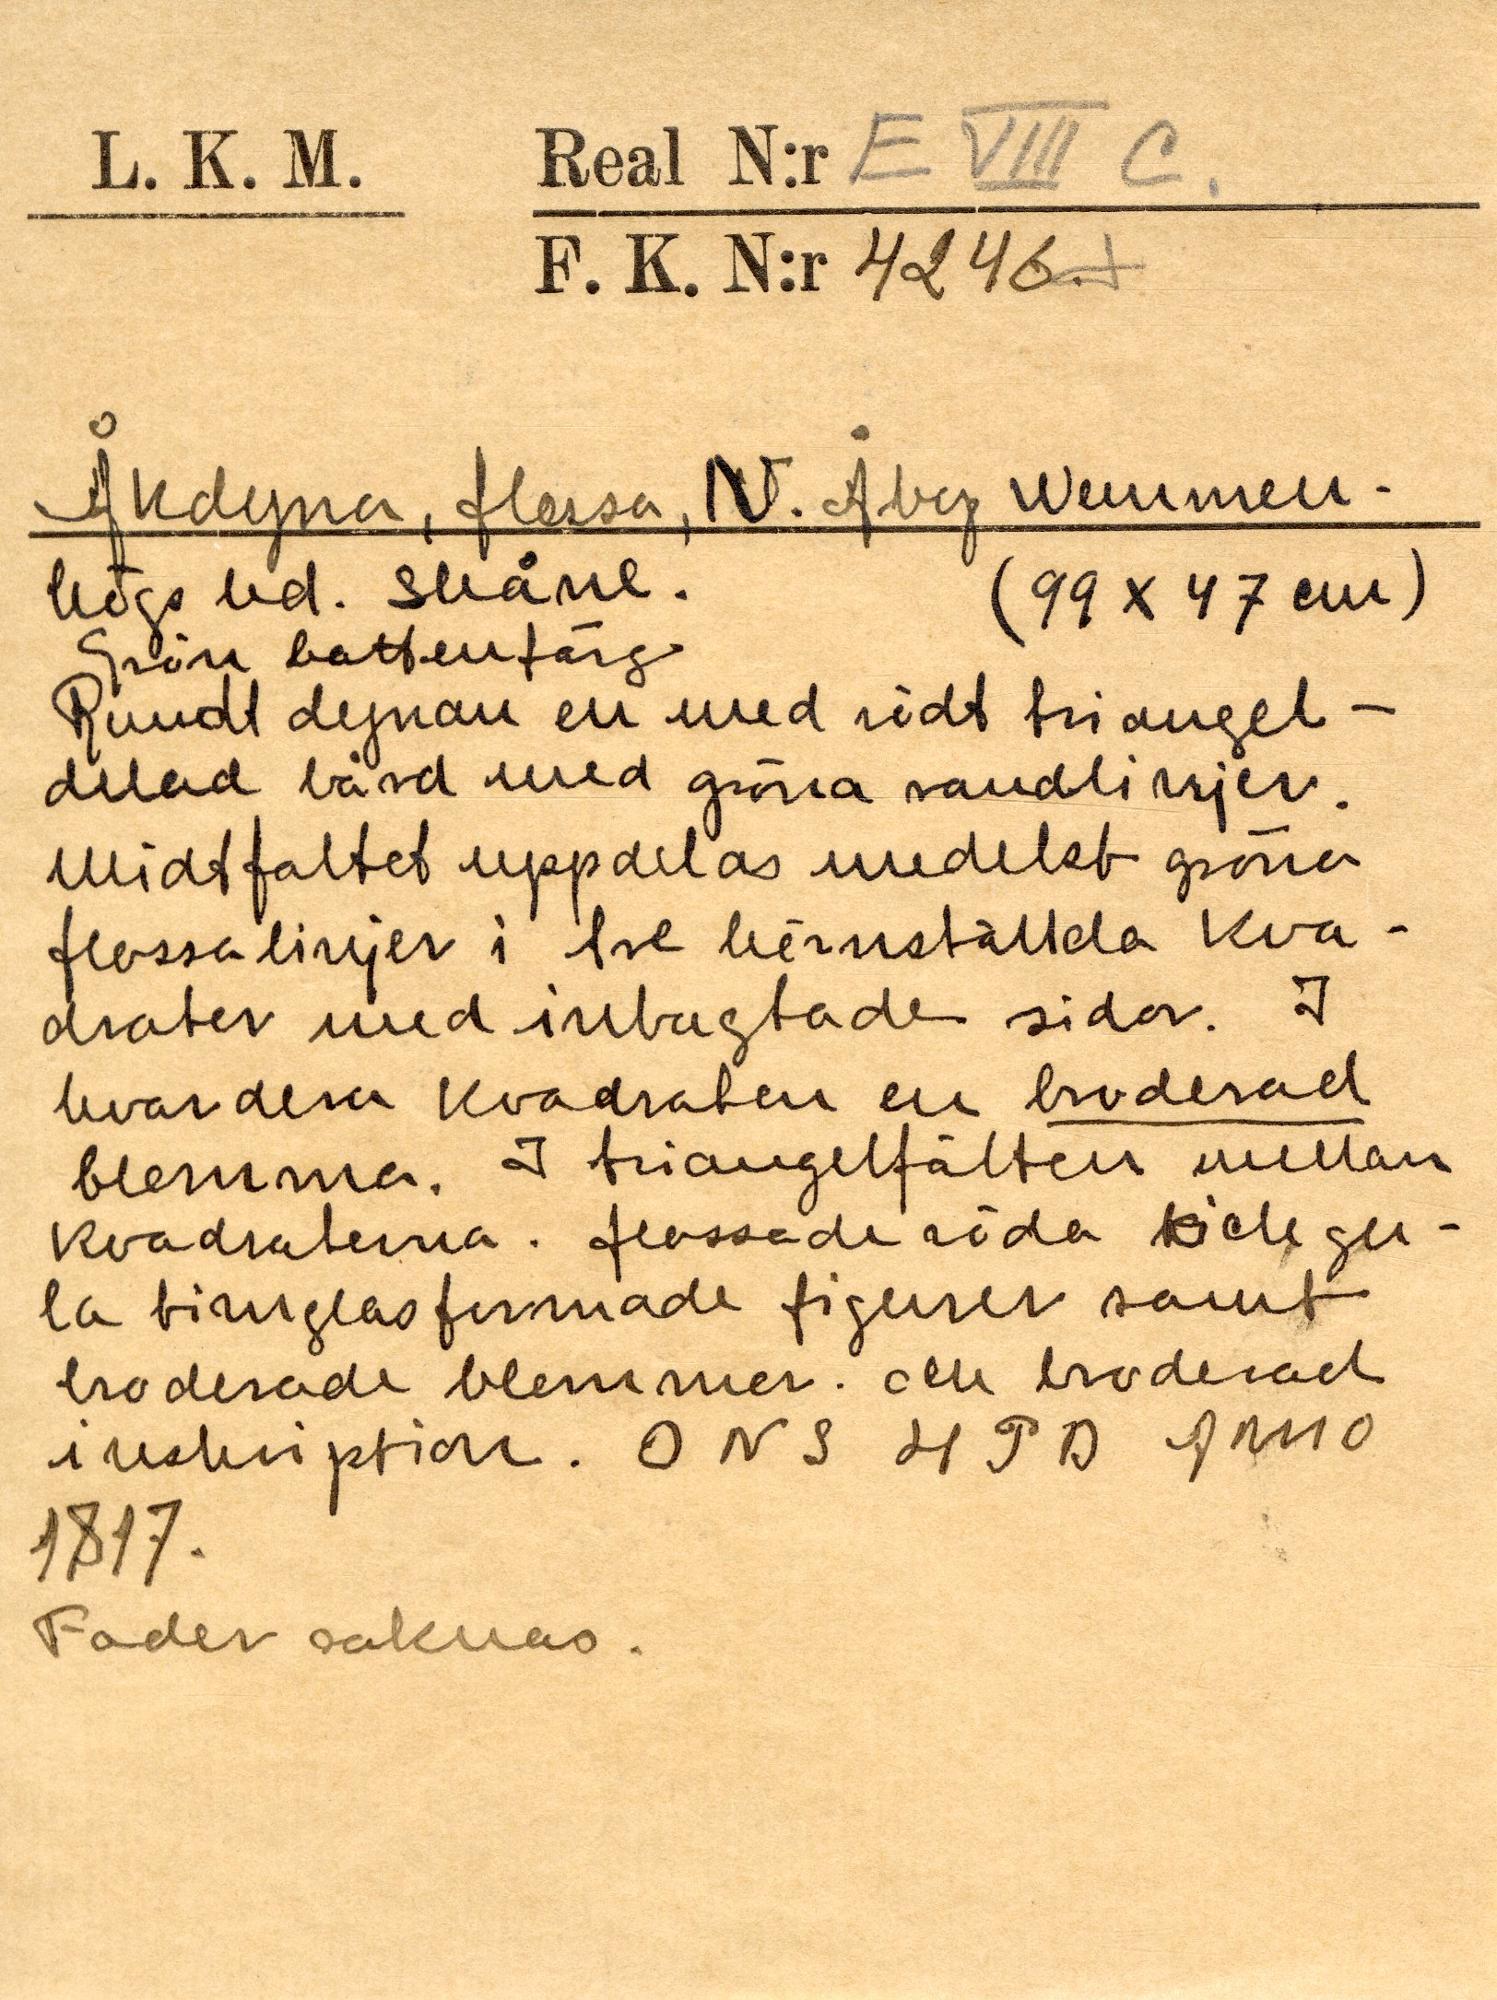 L. K. M. Real N:r E VIII C.
F. K. N:r 4246.+
Åkdyna, flossa, N. Åby Wemmen-
högs hd. Skåne. (99 x 47 cm)
Grön bottenfärg
Rundt dynan en med rödt triangel-
delad bård med gröna randlinjer.
Midtfaltet uppdelas medelst gröna
flossalinjer i tre hörnställda kva-
drater med inbugtade sidor. I
hvardera kvadraten en broderad
blomma. I triangelfälten mellan
kvadraterna. flossade röda och gu-
la timglasformade figurer samt
broderade blommor. och broderad
inskription. O N S H P D ANNO
1817.
Foder saknas.